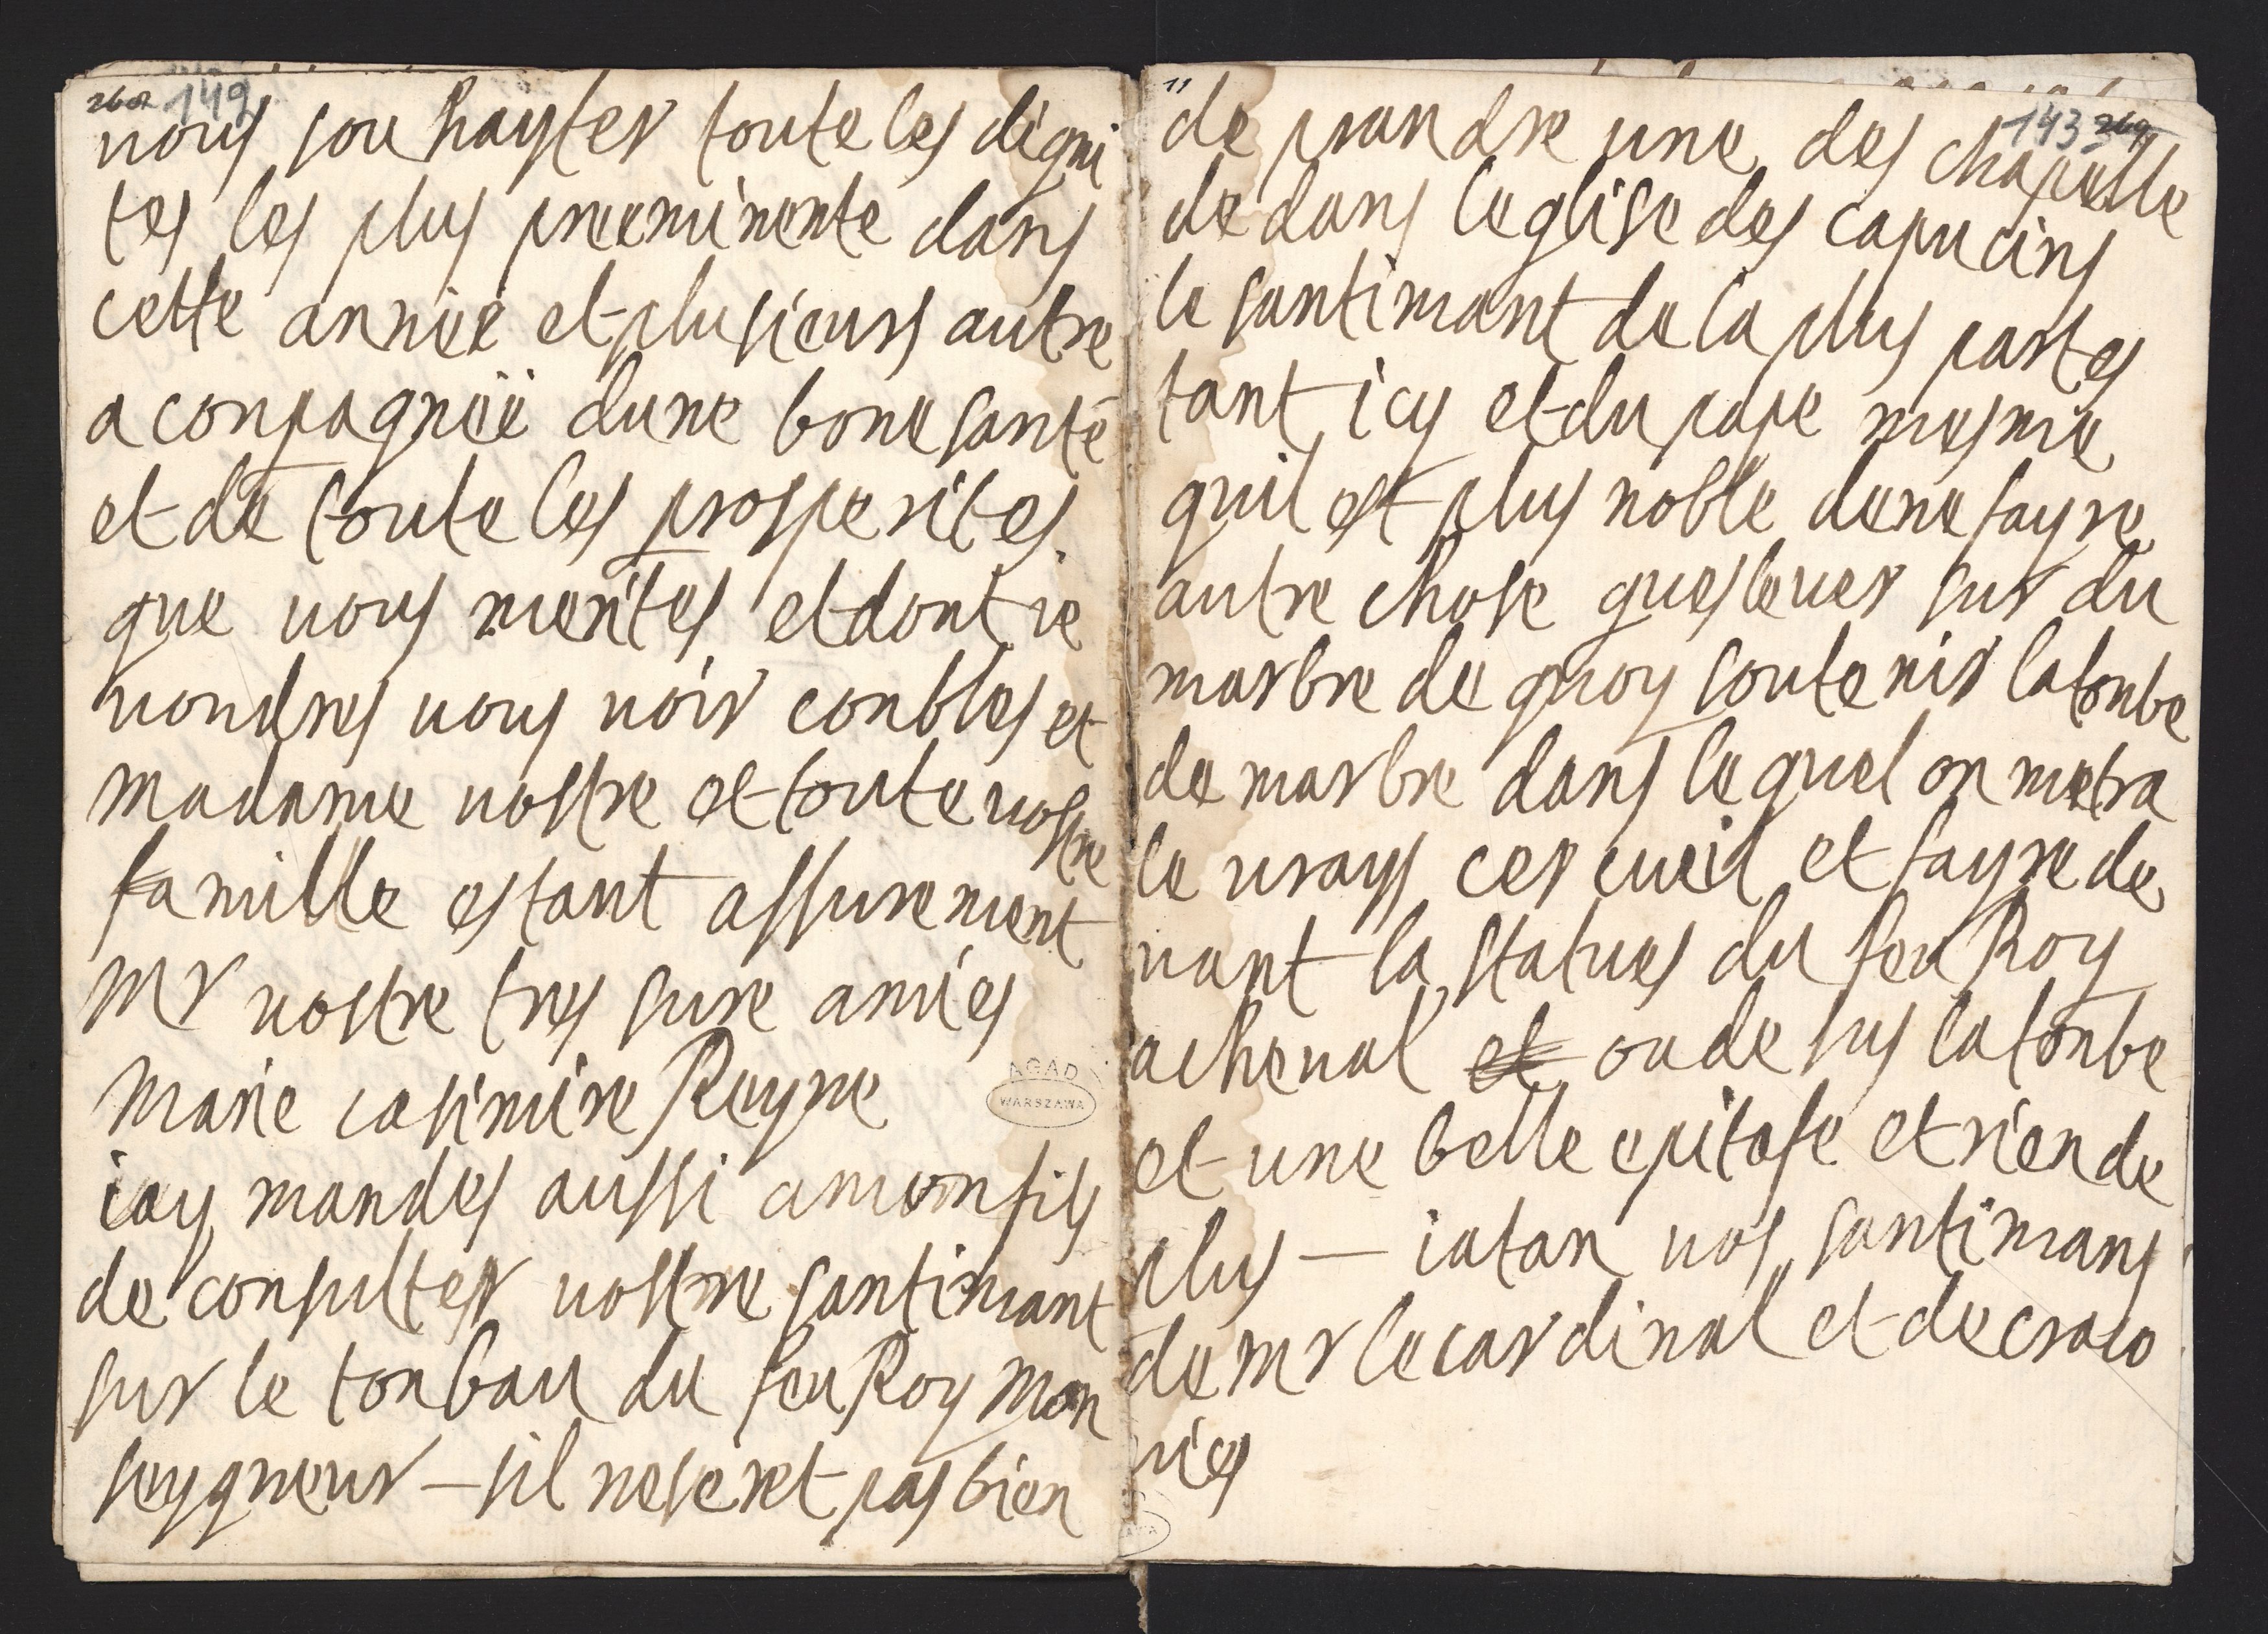 268 149
uous souhayter toute les digni
tes les plus preeminente dans
cette anneé et plusieurs autre
a conpagneë dune bone santé
et de toute les prosperites
que uous merites et dont ie
uoudres uous uoir conbles et
madame uostre et toute uostre
famille estant assurement
Mr uostre tres sure amies
Marie casimire Reyne
AGAD
WARSZAWA
iay mandes aussi amomfils
de consulter uostre santimant
sur le tonbau du feu Roy mon
seygneur – sil neseret pas bien
11
143 269
de prandre une des chapelle
de dans leglise des capucins
le santimant de la plus partes
tant icy et du pape mesme
quil est plus noble dene fayre
autre chose quesleuer sur du
marbre de quoy soutenir latonbe
de marbre dans lequel on metra
le urays cercueil et fayre de
uant la statues du feu Roy
acheual et ou de sus latonbe
et une belle epitafe et rien de
plus – iatan uos santimans
de mr lecardinal et de craco
uies